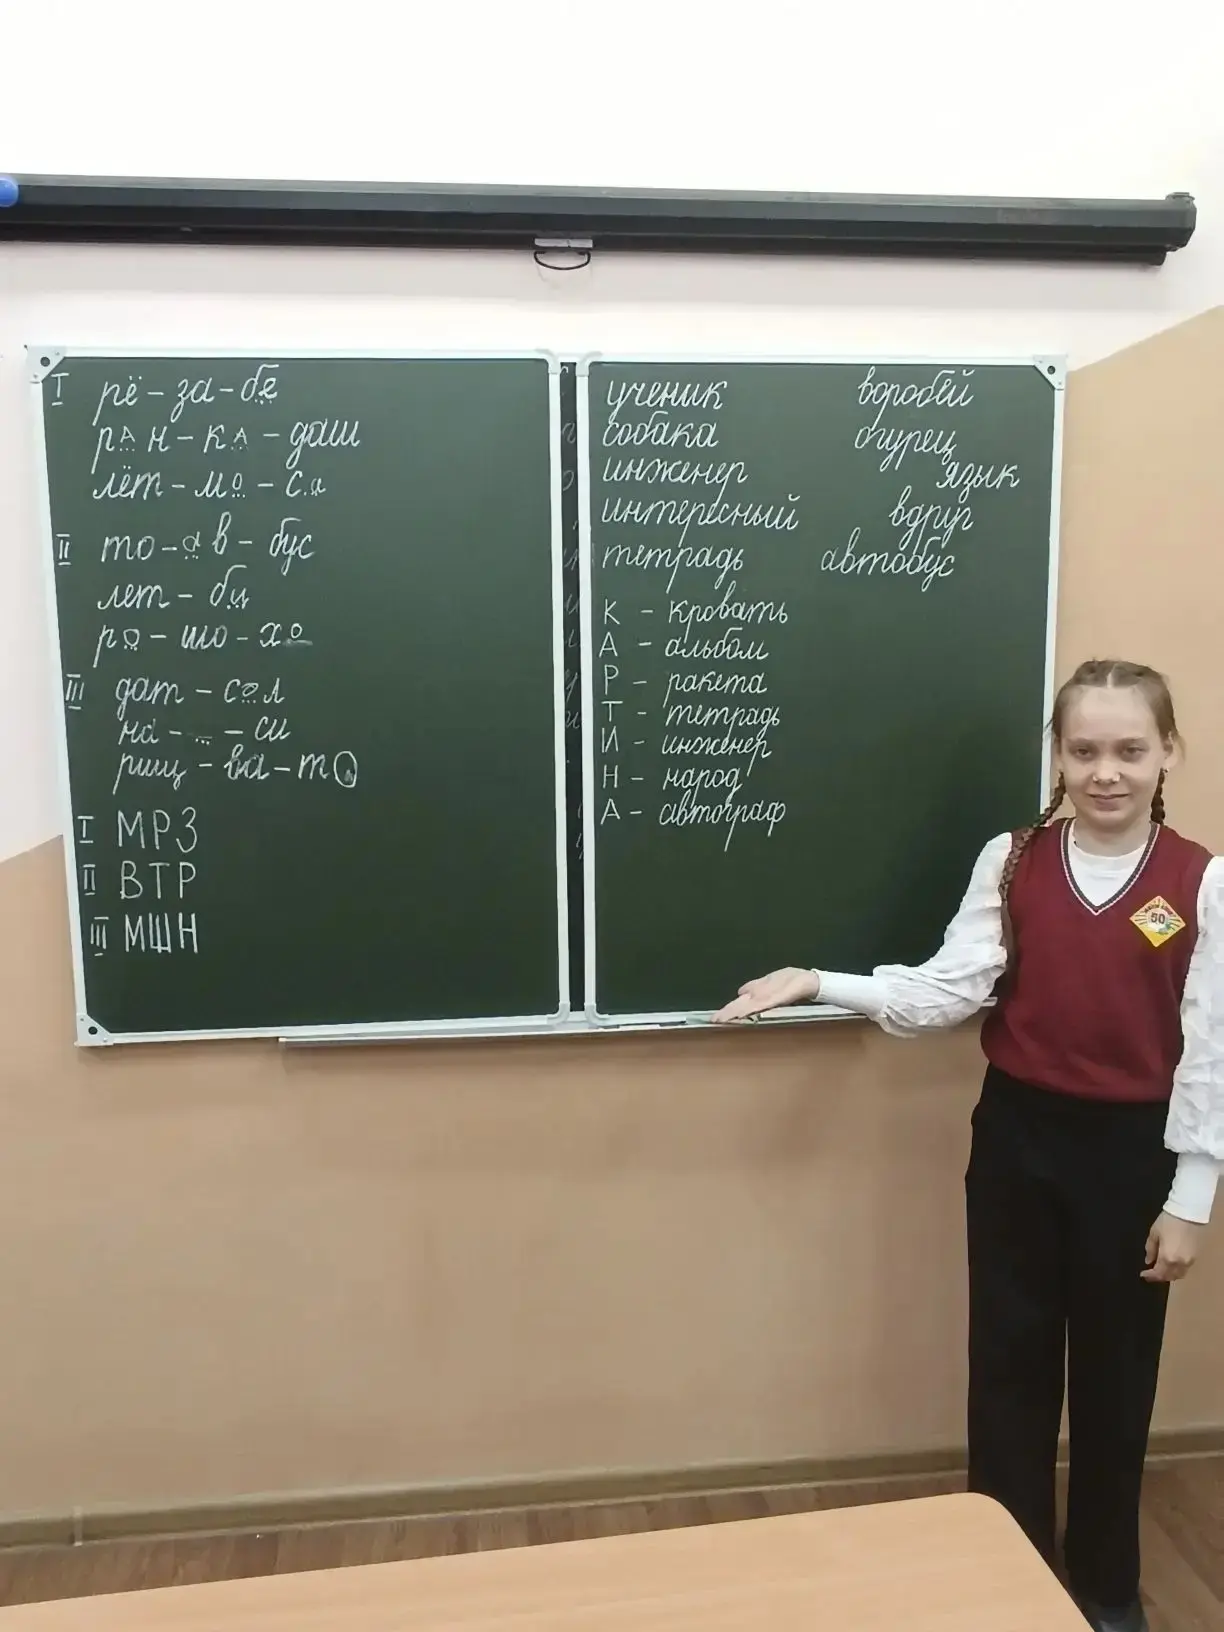 I рё - за - бе
ран - ка - даш
лёт - мо - са
II то - ав - бус
лет - би
ро - шо - хо
III дат - сол
на - ... - си
рищ - ва - то
I МРЗ
II ВТР
III МШН
ученик воробей
собака огурец
инженер язык
интересный вдруг
тетрадь автобус
К - кровать
А - альбом
Р - ракета
Т - тетрадь
И - инженер
Н - народ
А - автограф
50